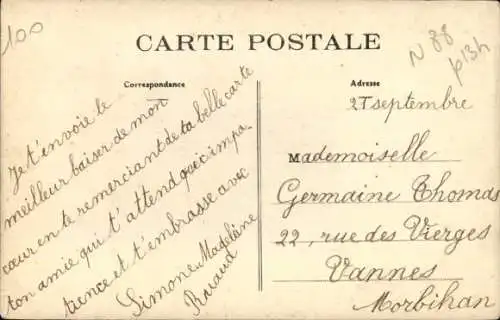 100
N 88
p13h
CARTE POSTALE
Correspondance
Adresse
Je t'envoie le
meilleur baiser de mon
cœur en te remerciant de ta belle carte
ton amie qui t'attend avec impa
tience et t'embrasse avec
Simone, Madeleine
27 septembre
Mademoiselle
Germaine Thomas
22, rue des Vierges
Vannes
Morbihan